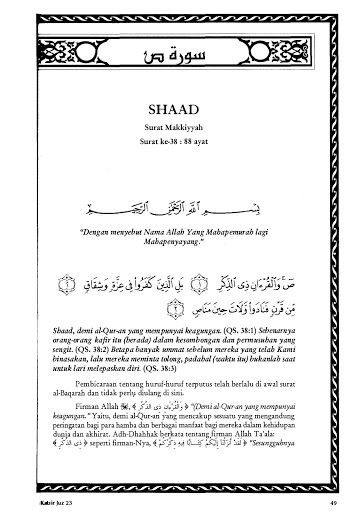 سورة ص
SHAAD
Surat Makkiyyah
Surat ke-38 : 88 ayat
بِسْمِ اللَّهِ الرَّحْمَٰنِ الرَّحِيمِ
"Dengan menyebut Nama Allah Yang Mahapemurah lagi
Mahapenyayang."
صٓ وَالْقُرْءَانِ ذِى الذِّكْرِ ﴿١﴾ بَلِ الَّذِينَ كَفَرُوا۟ فِى عِزَّةٍ وَشِقَاقٍ ﴿٢﴾
مِّن قَرْنٍ فَنَادَوا۟ وَّلَاتَ حِينَ مَنَاصٍ ﴿٣﴾
Shaad, demi al-Qur-an yang mempunyai keagungan. (QS. 38:1) Sebenarnya
orang-orang kafir itu (berada) dalam kesombongan dan permusuhan yang
sengit. (QS. 38:2) Betapa banyak ummat sebelum mereka yang telah Kami
binasakan, lalu mereka meminta tolong, padahal (waktu itu) bukanlah saat
untuk lari melepaskan diri. (QS. 38:3)
Pembicaraan tentang huruf-huruf terputus telah berlalu di awal surat
al-Baqarah dan tidak perlu diulang di sini.
Firman Allah ﷻ, ﴾ وَالْقُرْءَانِ ذِى الذِّكْرِ ﴿ "(Demi al-Qur-an yang mempunyai
keagungan." Yaitu, demi al-Qur-an yang mencakup sesuatu yang mengandung
peringatan bagi para hamba dan berbagai manfaat bagi mereka dalam kehidupan
dunia dan akhirat. Adh-Dhahhak berkata tentang firman Allah Ta'ala:
﴾ ذِى الذِّكْرِ ﴿ seperti firman-Nya, ﴾ لَقَدْ أَنزَلْنَا إِلَيْكُمْ كِتَابًا فِيهِ ذِكْرُكُمْ ﴿ "Sesungguhnya
Katsir Juz 23
49